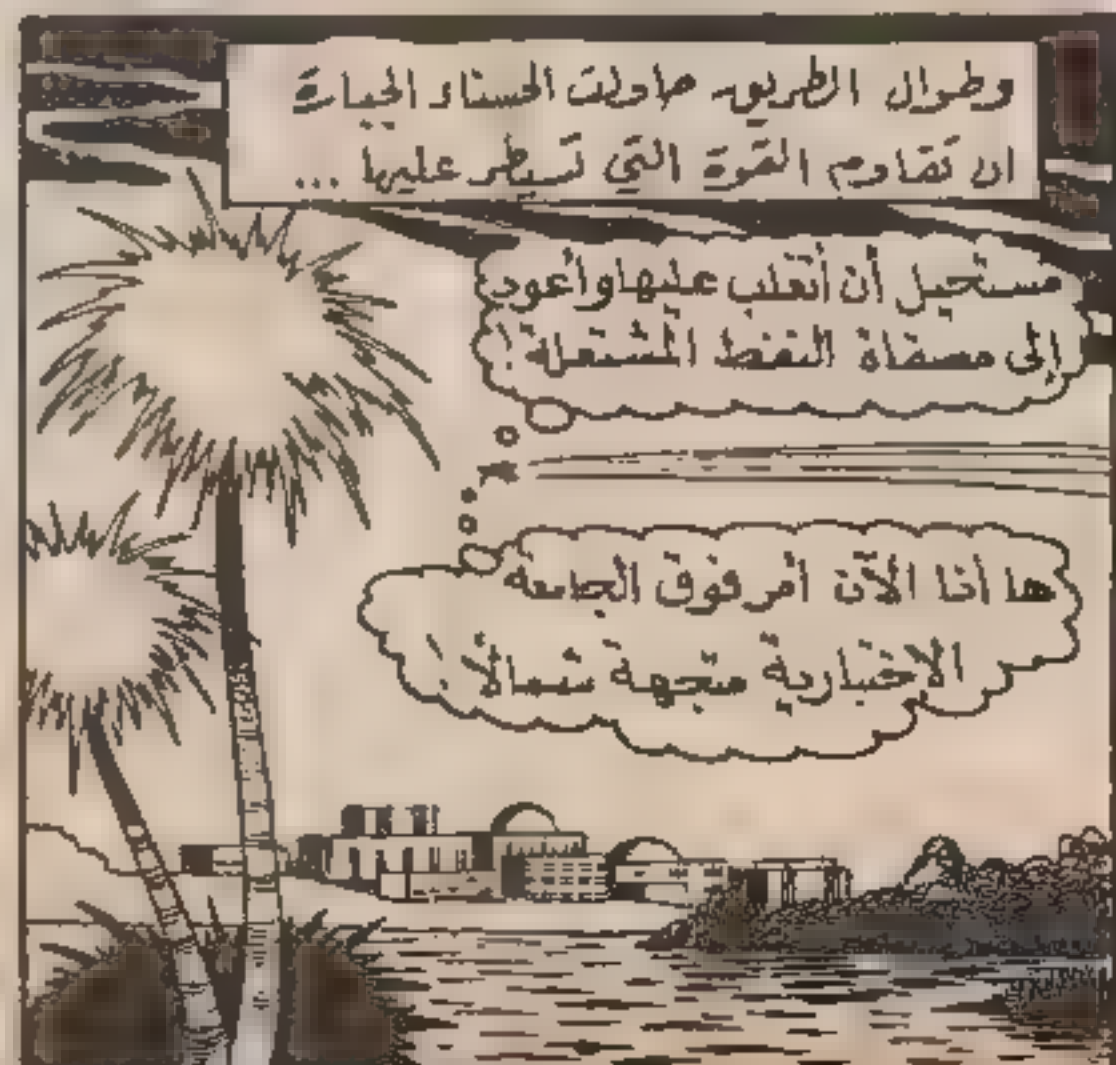 وطوال الطريق حاولت الحسناء الجبارة
ان تقاوم القوة التي تسيطر عليها ...
مستحيل أن أتغلب عليها وأعود
إلى مصفاة النفط المشتعلة !
ها أنا الآن أمر فوق الجامعة
الاختبارية متجهة شمالاً !